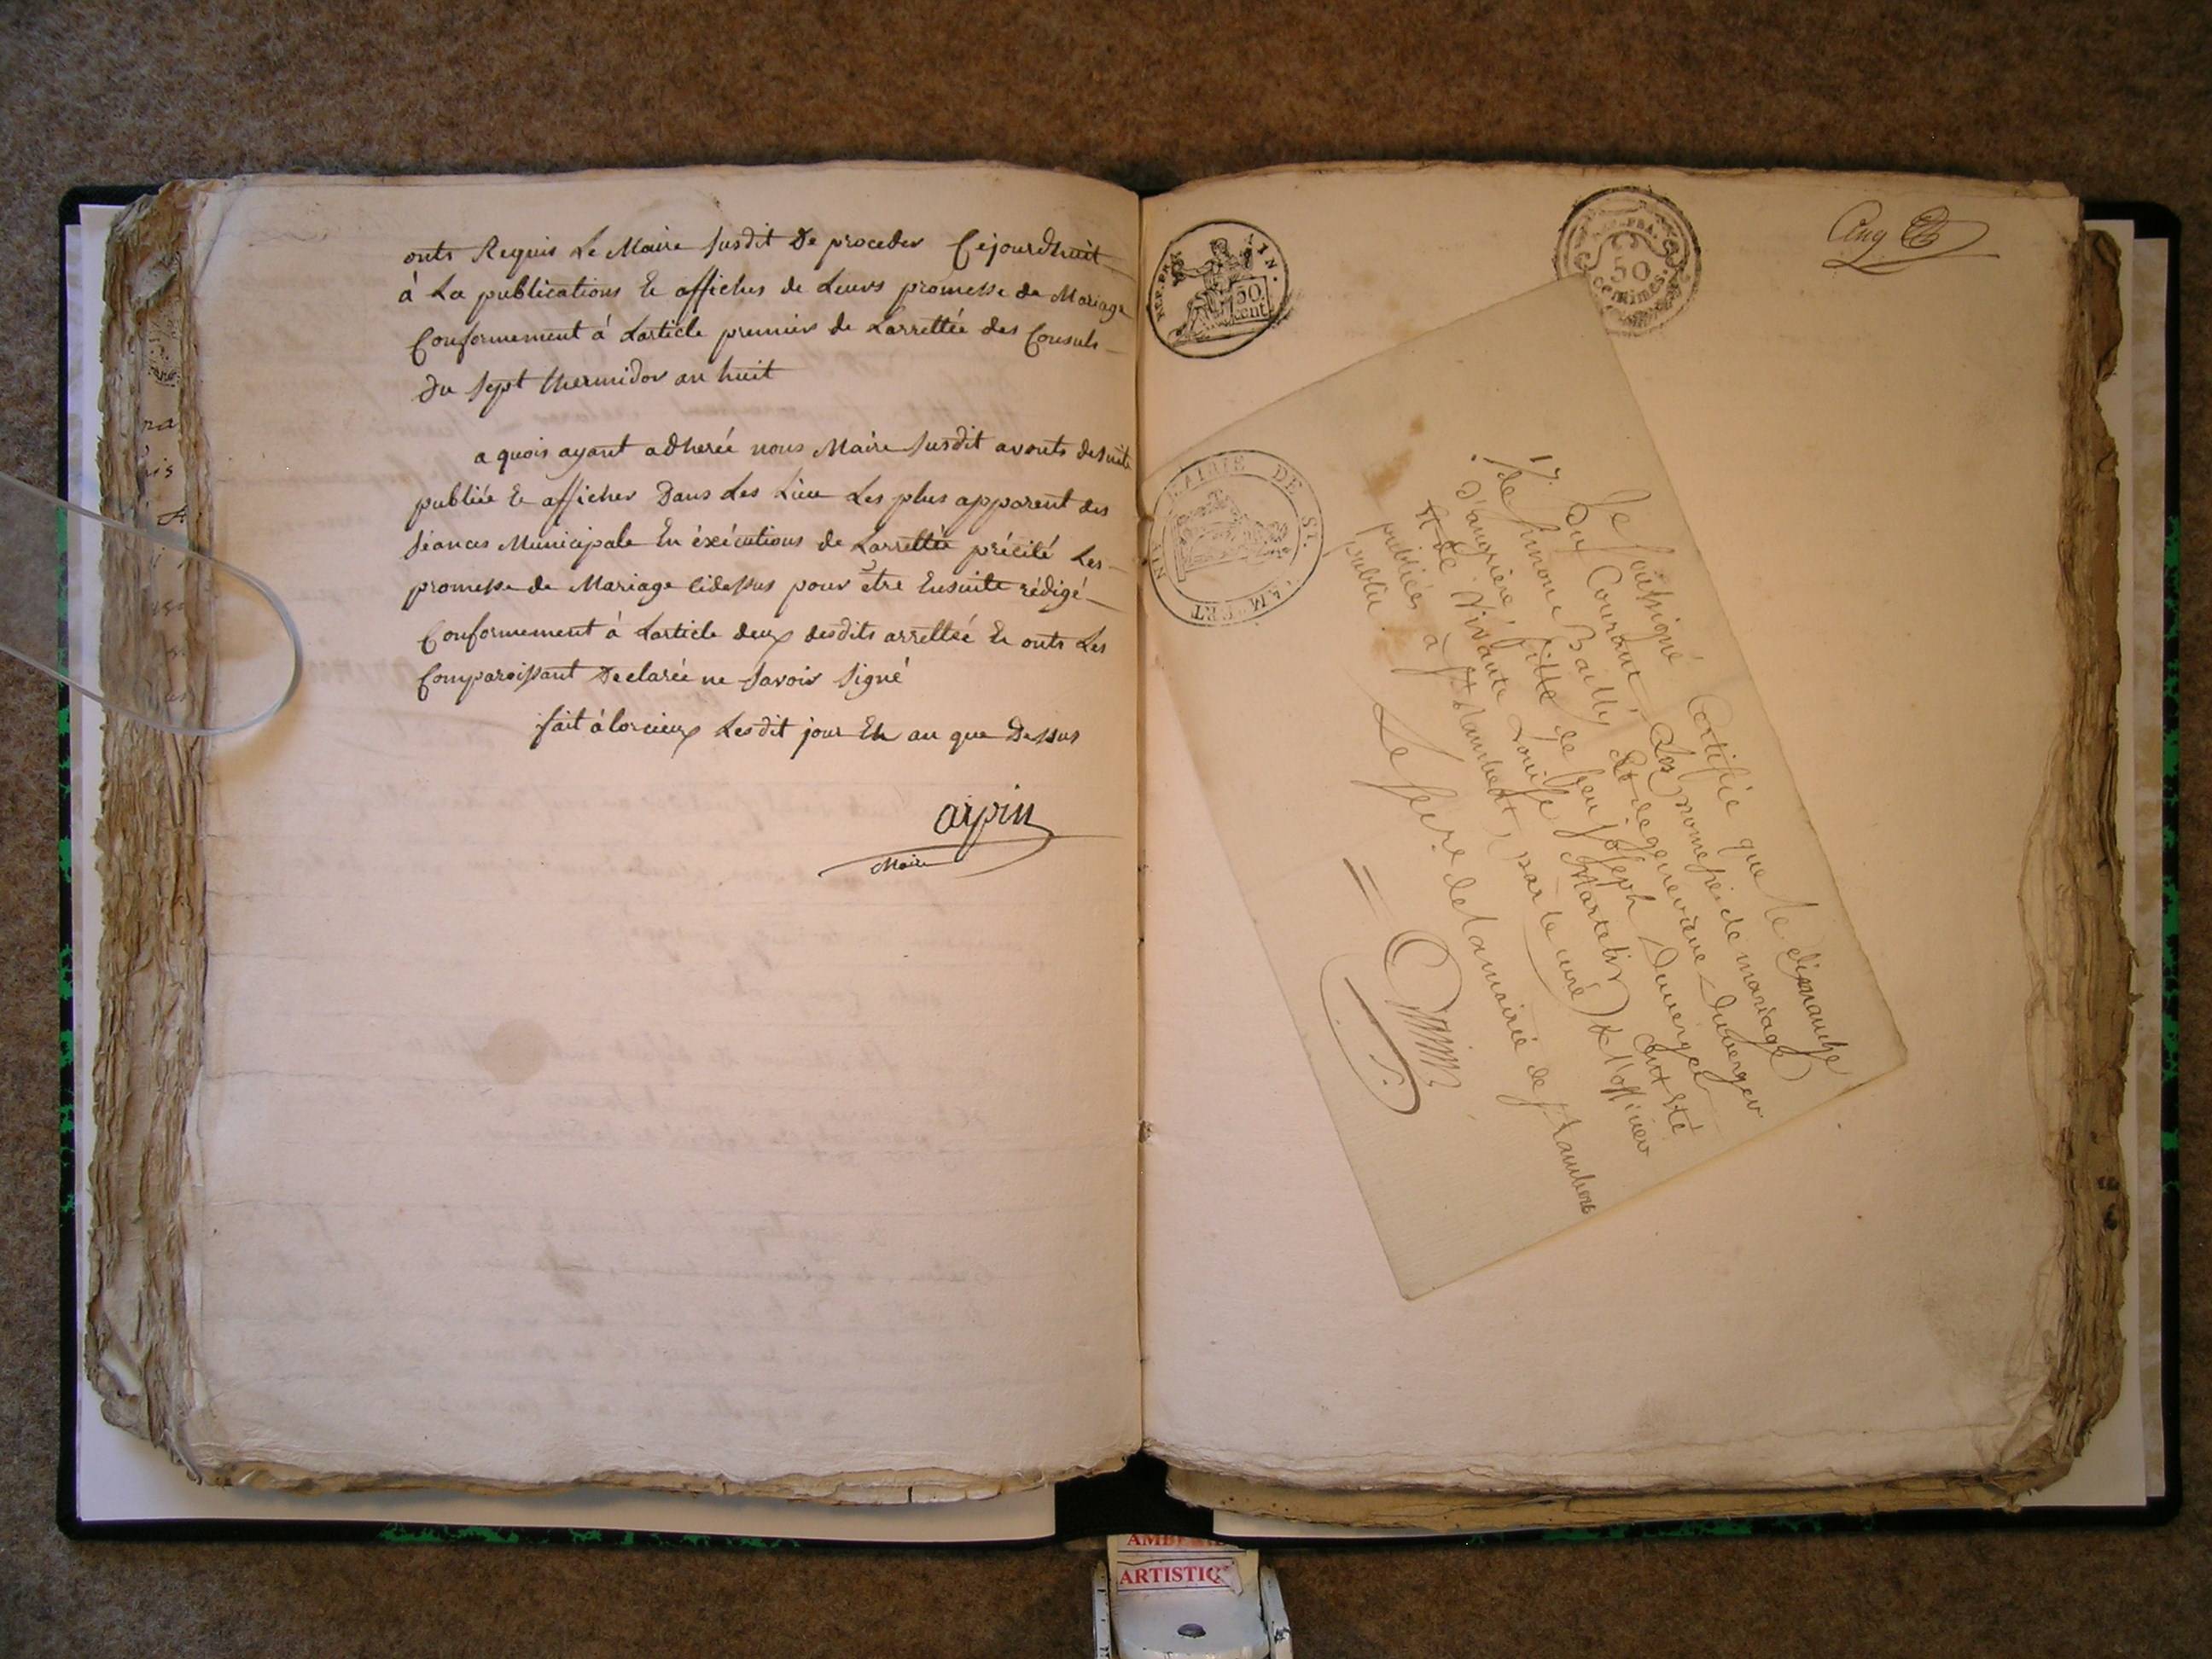 onts Requis Le Maire susdit de proceder Cejourdhuit
à La publications Et affiches de Leurs promesse de Mariage
Conformement à Larticle premier de Larrettée des Consuls
du sept thermidor an huit
a quois ayant adherée nous Maire susdit avonts desuite
publiée Et afficher Dans Les Lieu Les plus apparent des
séances Municipale En éxécutions de Larrettée précité Les
promesse de Mariage cidessus pour être Ensuite rédigé
Conformement à Larticle deux desdits arrettée Et onts Les
Comparoissant Declarée ne savoir signé
fait à lorcieux Lesdit jour Et an que Dessus
arpin
Maire
REP. FRA.
50
cent
REP. FRA.
50
centimes
Cinq
MAIRIE DE ST. RAMBERT
AIN
Je soussigné Certifie que le dimanche
17. Du Courant Les promesse de mariage
de Simone Bailly Et de genevieve Duverger
D'angriere fille de feu joseph Duverger
Et de vivante Louise Martelin ont été
publiées à St Rambert par le curé & l'officier
public.
Le secre. de la mairie de St Rambert
AMBERIE
ARTISTIQ